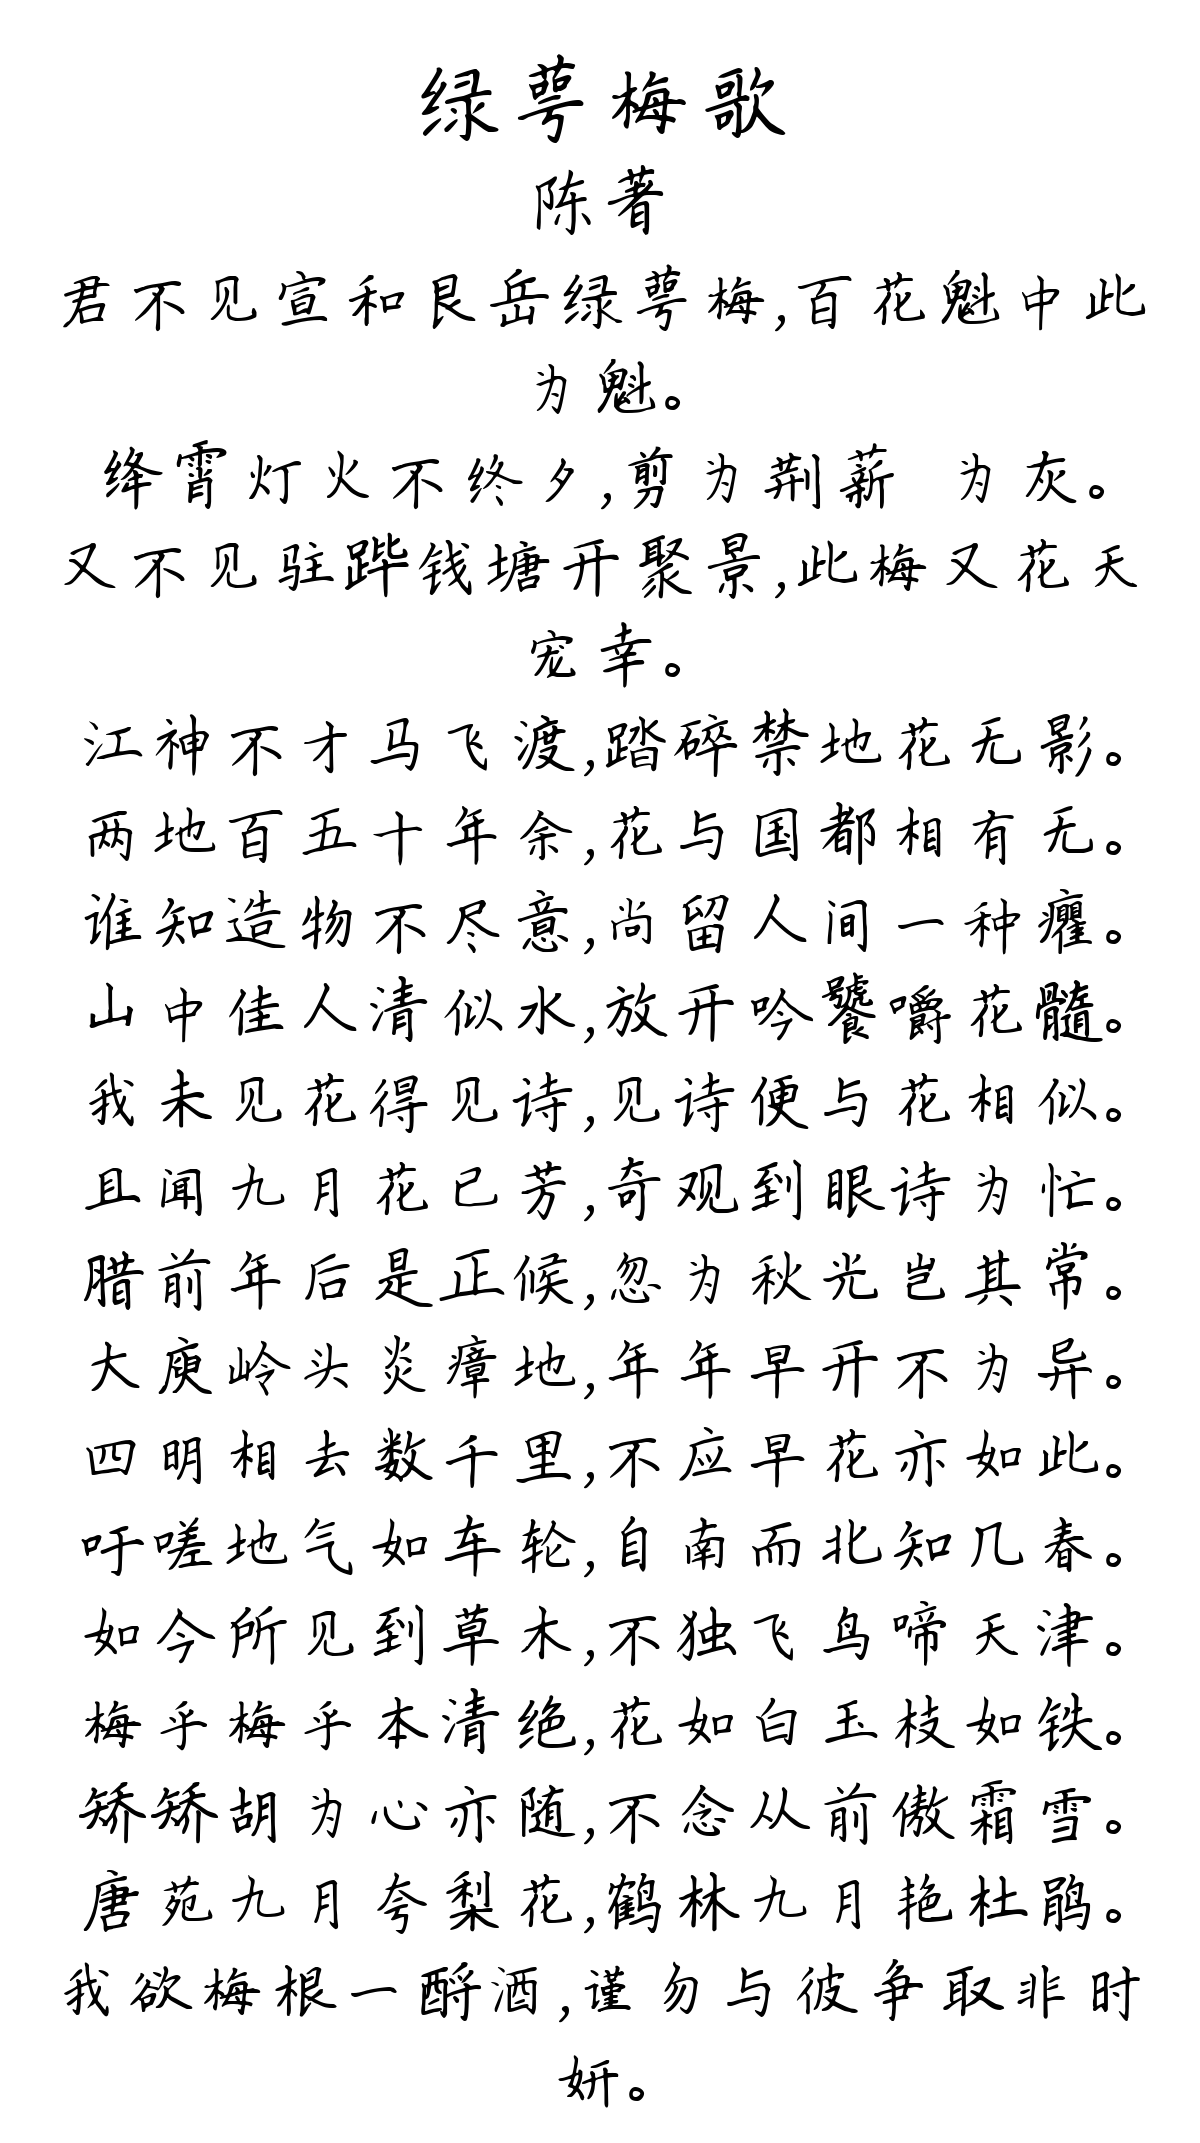 绿萼梅歌
陈著
君不见宣和艮岳绿萼梅,百花魁中此
为魁。
绛霄灯火不终夕,剪为荆薪 为灰。
又不见驻跸钱塘开聚景,此梅又花天
宠幸。
江神不才马飞渡,踏碎禁地花无影。
两地百五十年余,花与国都相有无。
谁知造物不尽意,尚留人间一种癯。
山中佳人清似水,放开吟饕嚼花髓。
我未见花得见诗,见诗便与花相似。
且闻九月花已芳,奇观到眼诗为忙。
腊前年后是正候,忽为秋光岂其常。
大庾岭头炎瘴地,年年早开不为异。
四明相去数千里,不应早花亦如此。
吁嗟地气如车轮,自南而北知几春。
如今所见到草木,不独飞鸟啼天津。
梅乎梅乎本清绝,花如白玉枝如铁。
矫矫胡为心亦随,不念从前傲霜雪。
唐苑九月夸梨花,鹤林九月艳杜鹃。
我欲梅根一酹酒,谨勿与彼争取非时
妍。